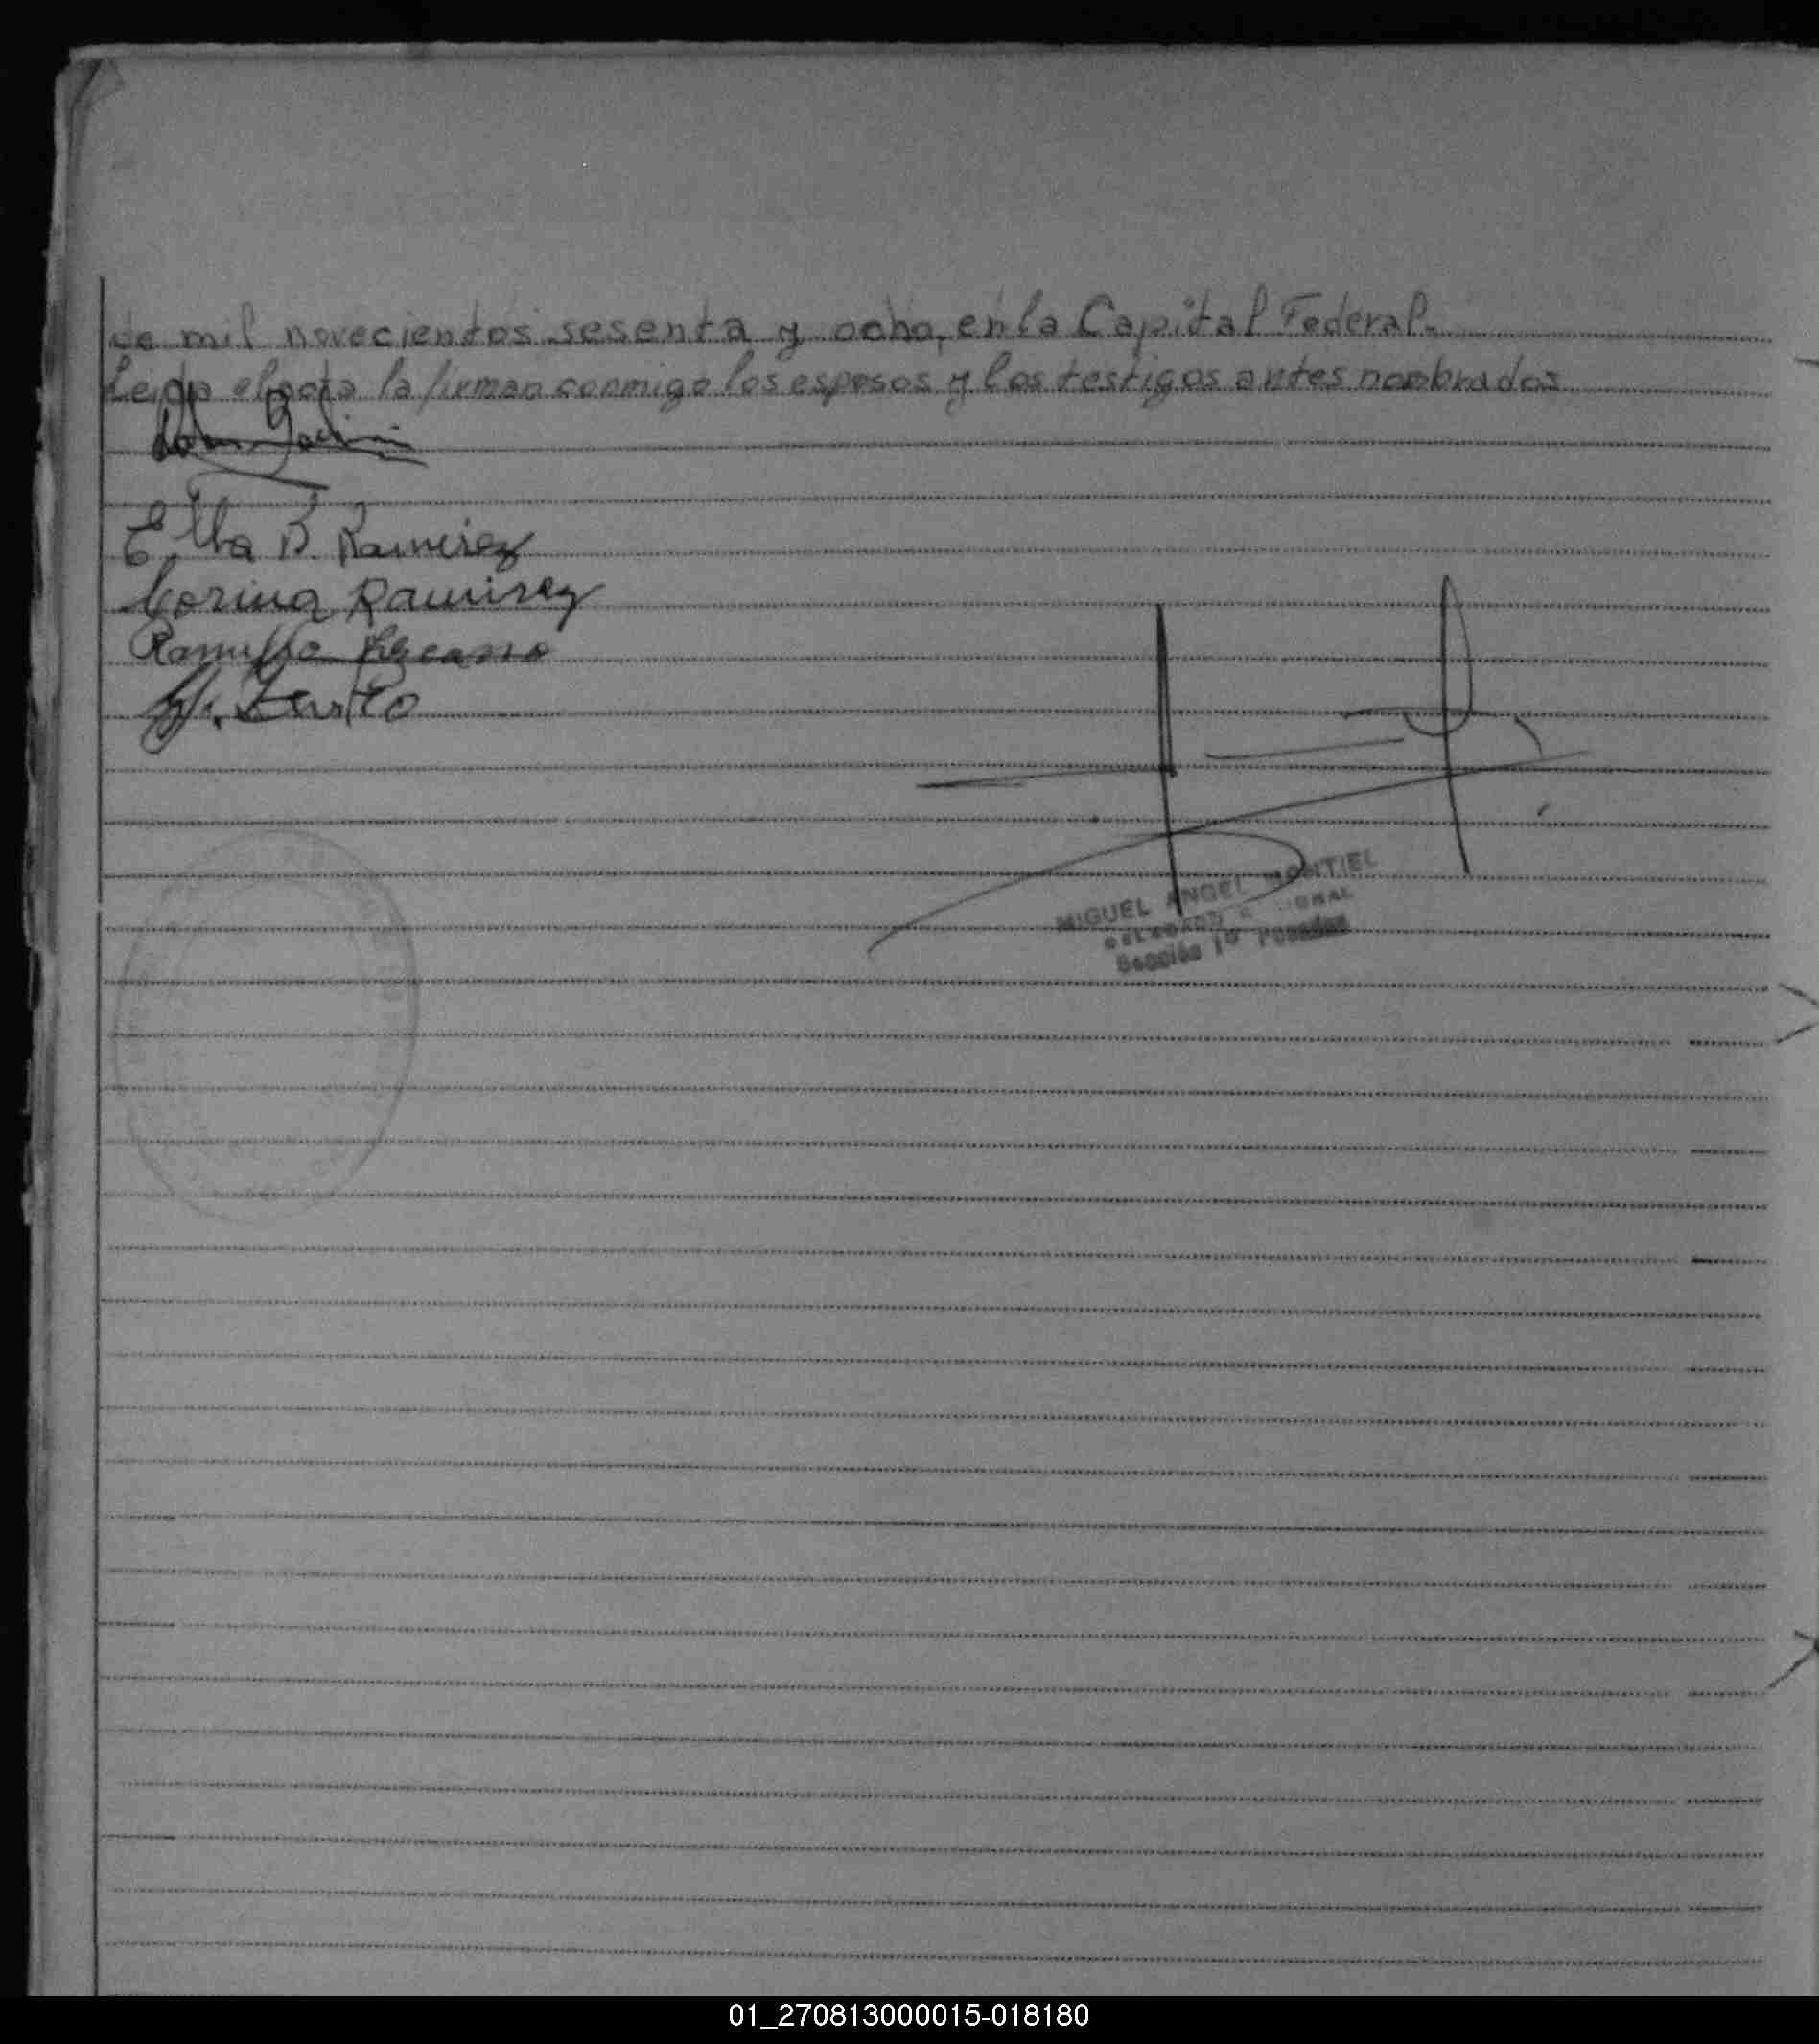 de mil novecientos sesenta y ocho, en la Capital Federal.
Leida el acta la firman conmigo los esposos y los testigos antes nombrados
Elba B. Ramirez
Corina Ramirez
Ramona
MIGUEL ANGEL MONTIEL
Sección 1ª Posadas
01_270813000015-018180